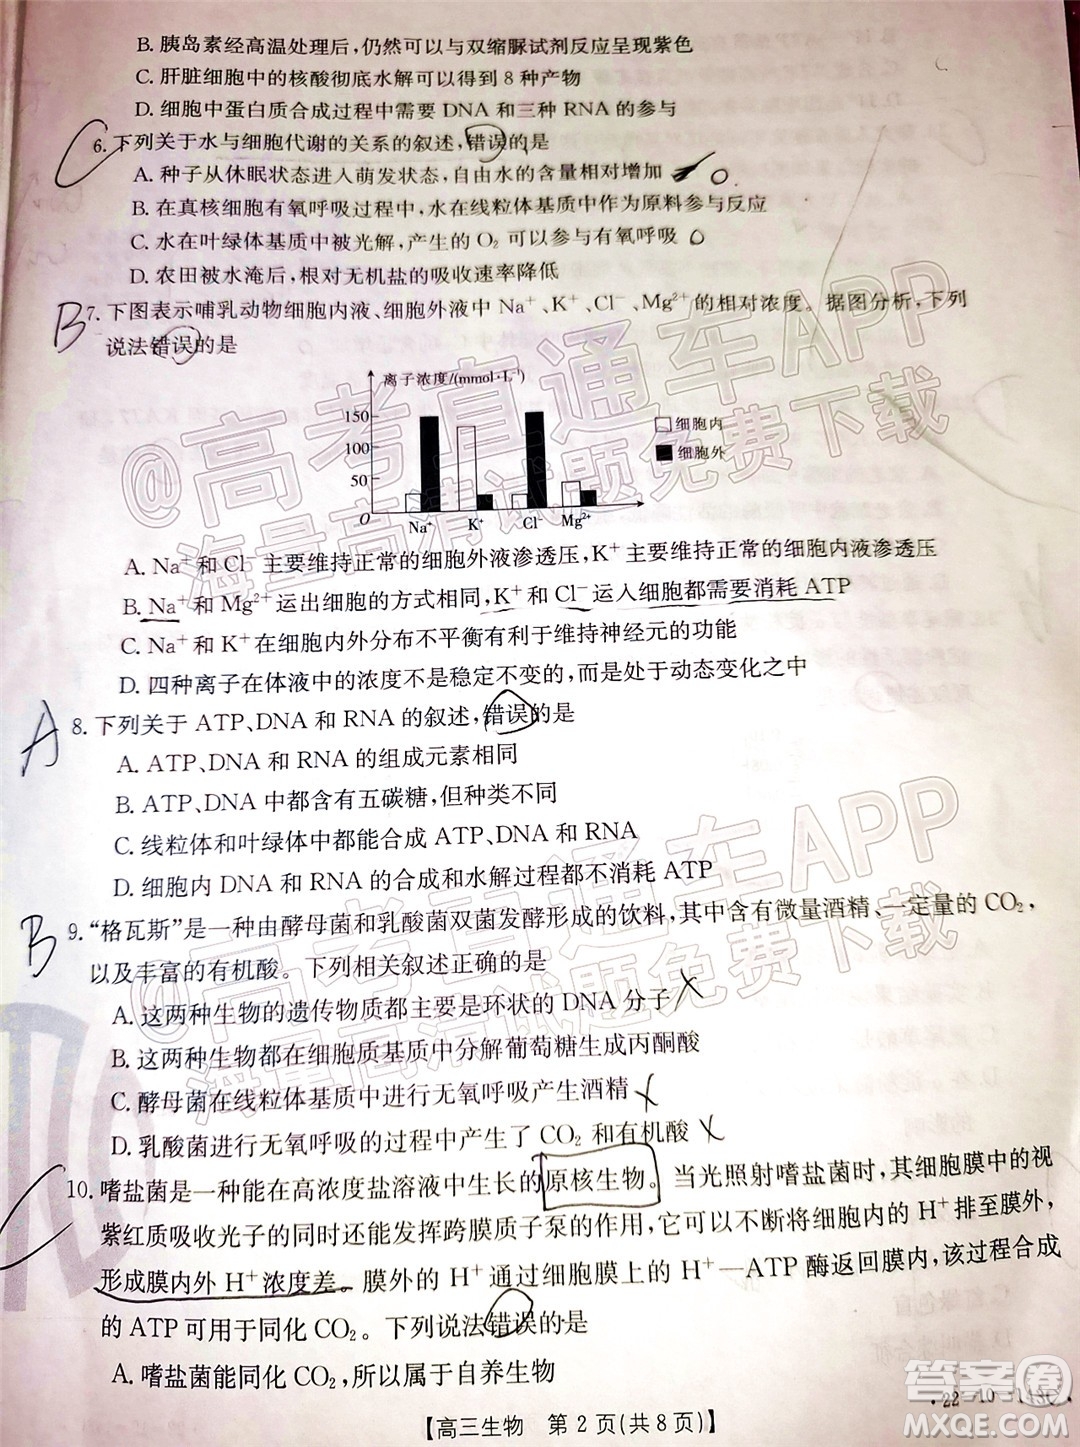 B. 胰岛素经高温处理后,仍然可以与双缩脲试剂反应呈现紫色
C. 肝脏细胞中的核酸彻底水解可以得到 8 种产物
D. 细胞中蛋白质合成过程中需要 DNA 和三种 RNA 的参与
6. 下列关于水与细胞代谢的关系的叙述,错误的是
A. 种子从休眠状态进入萌发状态,自由水的含量相对增加
B. 在真核细胞有氧呼吸过程中,水在线粒体基质中作为原料参与反应
C. 水在叶绿体基质中被光解,产生的 O₂ 可以参与有氧呼吸
D. 农田被水淹后,根对无机盐的吸收速率降低
B 7. 下图表示哺乳动物细胞内液、细胞外液中 Na⁺、K⁺、Cl⁻、Mg²⁺的相对浓度。据图分析,下列
说法错误的是
离子浓度/(mmol·L⁻¹)
150
100
50
O
Na⁺ K⁺ Cl⁻ Mg²⁺
细胞内
细胞外
A. Na⁺ 和 Cl⁻ 主要维持正常的细胞外液渗透压,K⁺ 主要维持正常的细胞内液渗透压
B. Na⁺ 和 Mg²⁺ 运出细胞的方式相同,K⁺ 和 Cl⁻ 运入细胞都需要消耗 ATP
C. Na⁺ 和 K⁺ 在细胞内外分布不平衡有利于维持神经元的功能
D. 四种离子在体液中的浓度不是稳定不变的,而是处于动态变化之中
A 8. 下列关于 ATP、DNA 和 RNA 的叙述,错误的是
A. ATP、DNA 和 RNA 的组成元素相同
B. ATP、DNA 中都含有五碳糖,但种类不同
C. 线粒体和叶绿体中都能合成 ATP、DNA 和 RNA
D. 细胞内 DNA 的合成和水解过程都不消耗 ATP
B 9. “格瓦斯”是一种由酵母菌和乳酸菌双菌发酵形成的饮料,其中含有微量酒精、一定量的 CO₂,
以及丰富的有机酸。下列相关叙述正确的是
A. 这两种生物的遗传物质都主要是环状的 DNA 分子
B. 这两种生物都在细胞质基质中分解葡萄糖生成丙酮酸
C. 酵母菌在线粒体基质中进行无氧呼吸产生酒精
D. 乳酸菌进行无氧呼吸的过程中产生了 CO₂ 和有机酸
10. 嗜盐菌是一种能在高浓度盐溶液中生长的原核生物。当光照射嗜盐菌时,其细胞膜中的视
紫红质吸收光子的同时还能发挥跨膜质子泵的作用,它可以不断将细胞内的 H⁺ 排至膜外,
形成膜内外 H⁺ 浓度差。膜外的 H⁺ 通过细胞膜上的 H⁺—ATP 酶返回膜内,该过程合成
的 ATP 可用于同化 CO₂。下列说法错误的是
A. 嗜盐菌能同化 CO₂,所以属于自养生物
【高三生物 第 2 页(共 8 页)】
·22-10-
@高考直通车APP
海量高清试题免费下载
@高考直通车APP
海量高清试题免费下载
答案圈
MXQE.COM